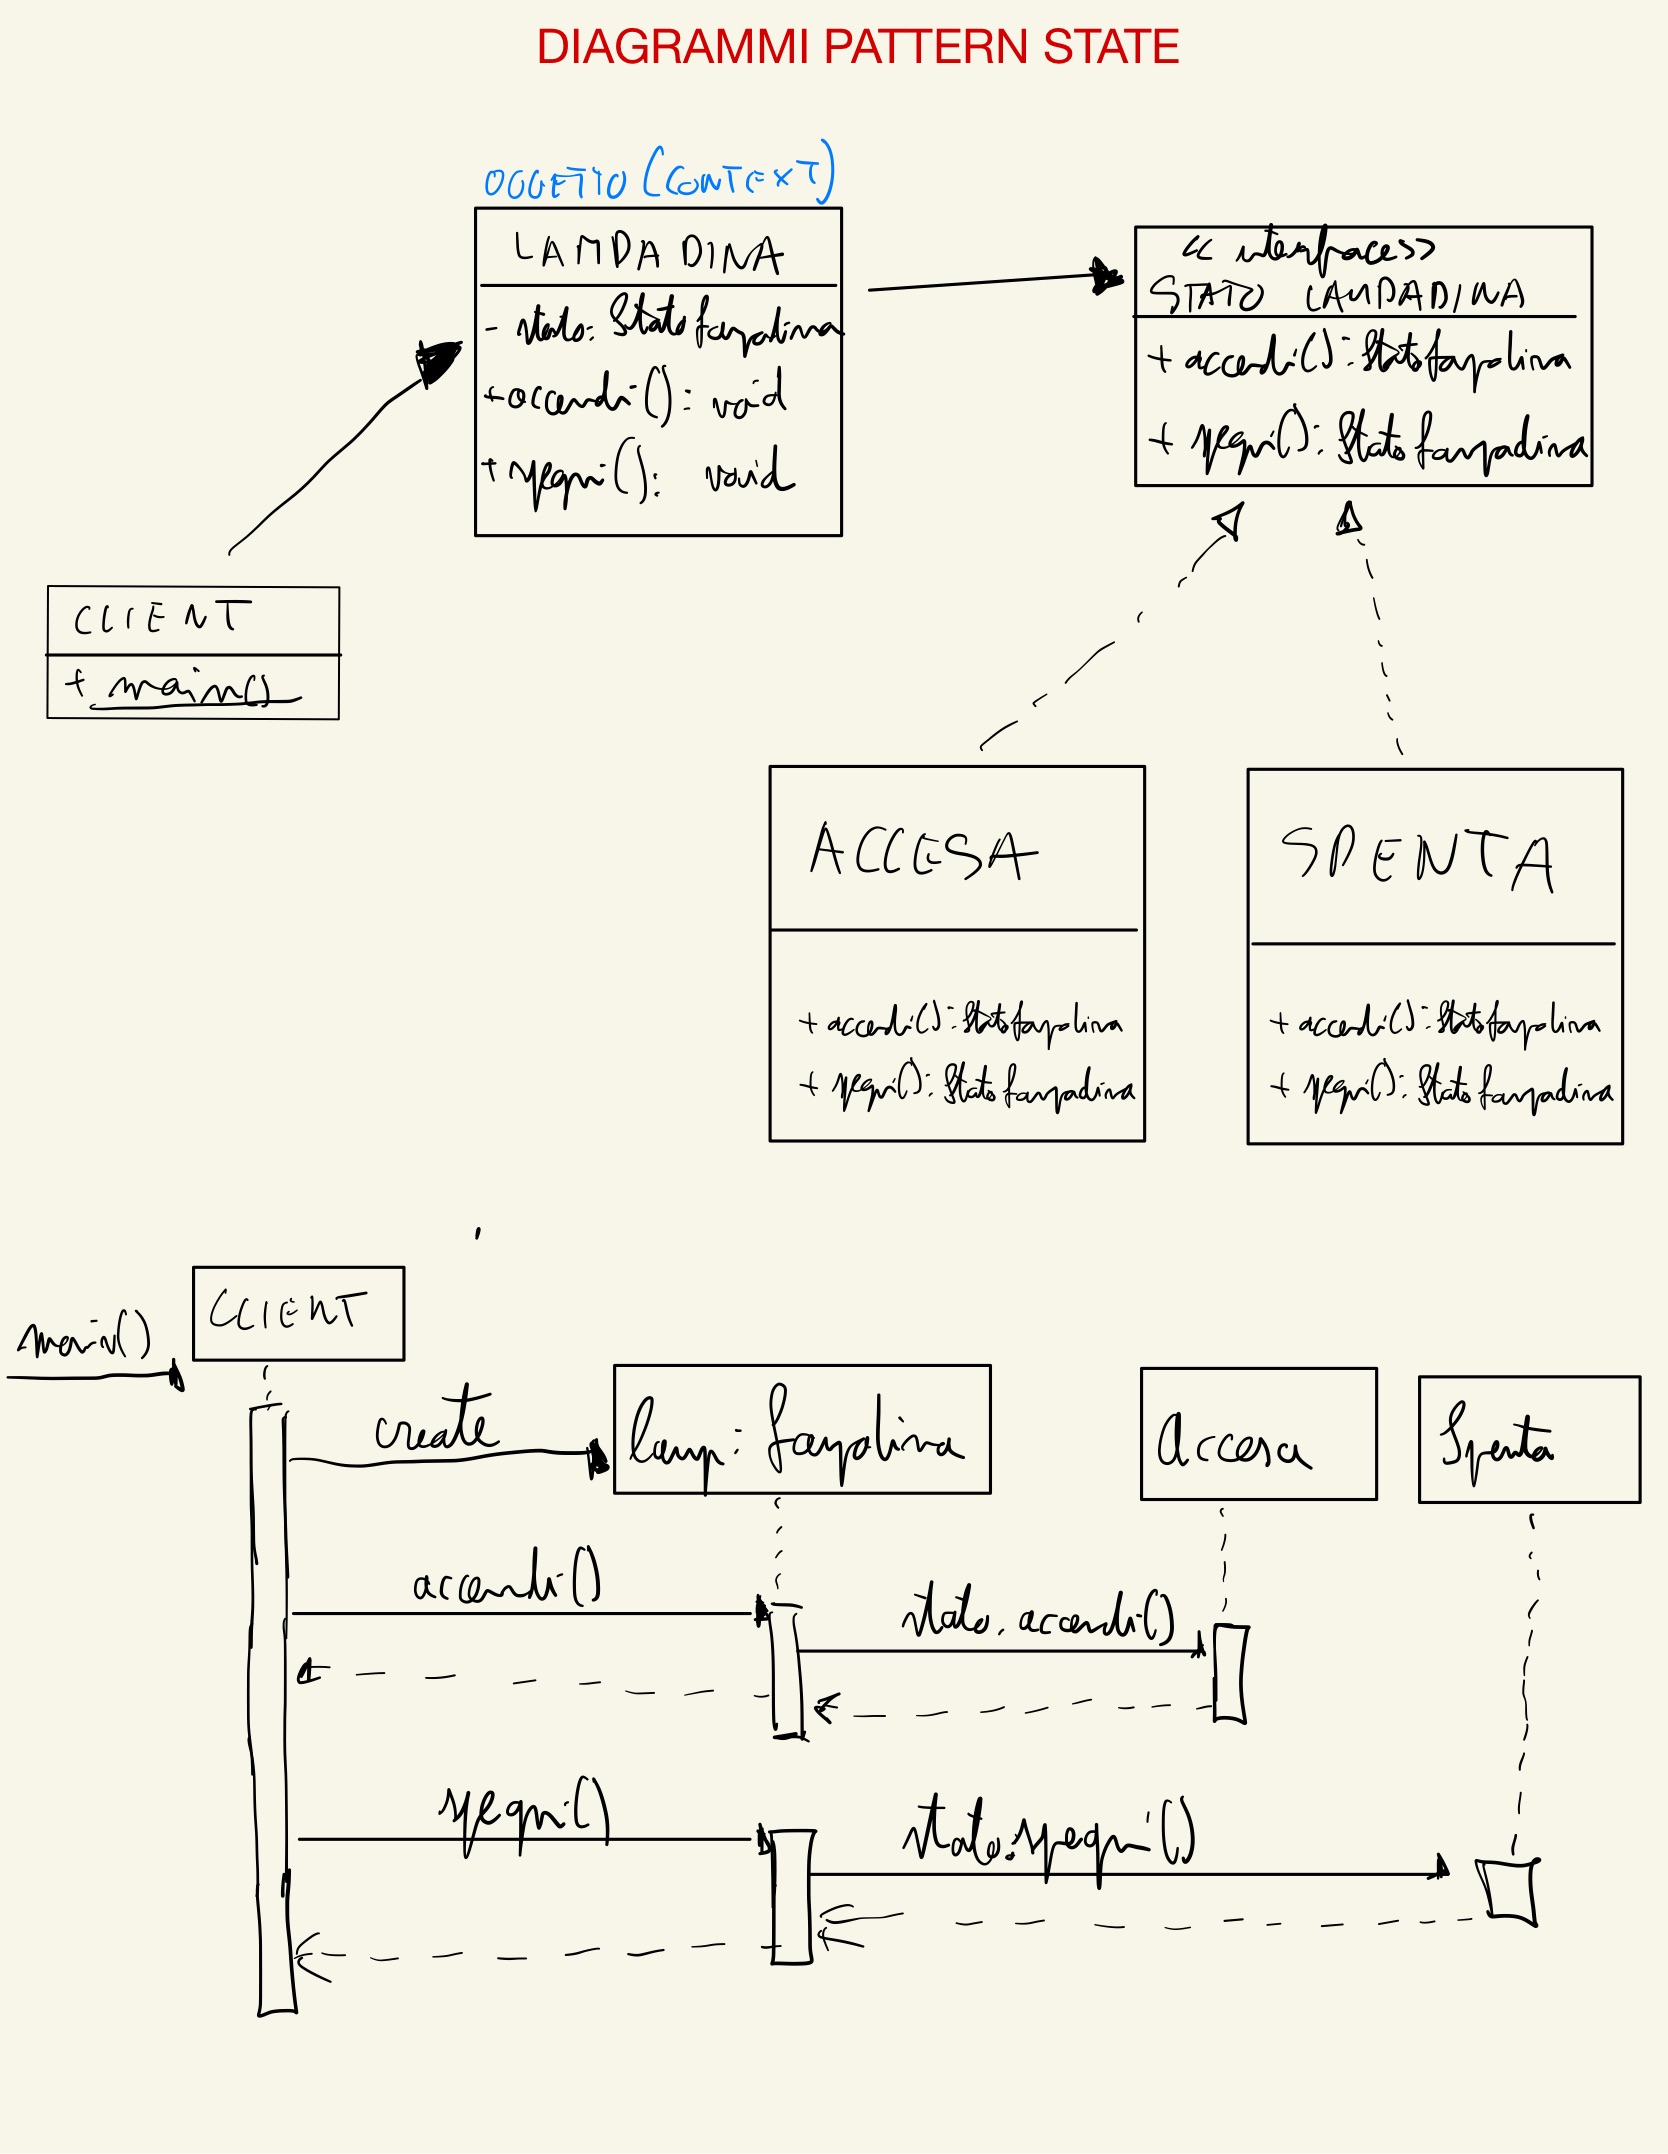 DIAGRAMMI PATTERN STATE
OGGETTO (CONTEXT)
LAMPADINA
- stato: StatoLampadina
+ accendi(): void
+ spegni(): void
<< interface>>
STATO LAMPADINA
+ accendi(): StatoLampadina
+ spegni(): StatoLampadina
CLIENT
+ main()
ACCESA
+ accendi(): StatoLampadina
+ spegni(): StatoLampadina
SPENTA
+ accendi(): StatoLampadina
+ spegni(): StatoLampadina
main()
CLIENT
create
lamp: Lampadina
Accesa
Spenta
accendi()
stato.accendi()
spegni()
stato.spegni()